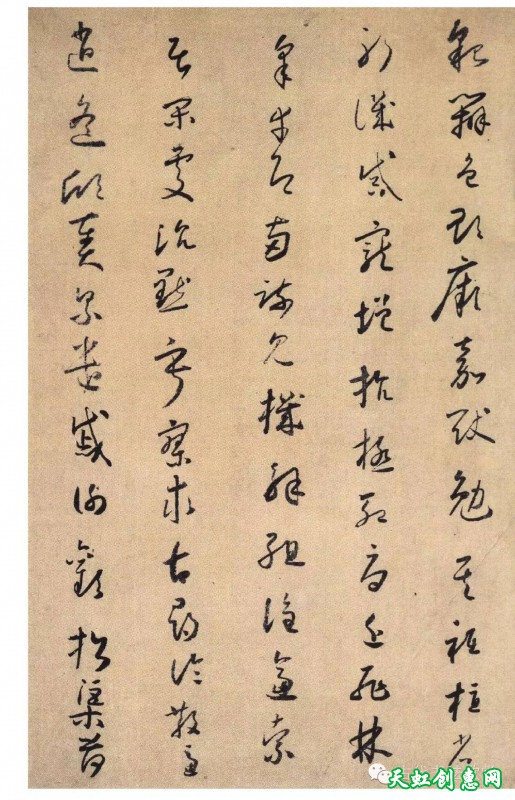 貌辨色貽厥嘉猷勉其祗植省
躬譏誡寵增抗極殆辱近恥林
皋幸即兩疏見機解組誰逼索
居閑處沉默寂寥求古尋論散慮
逍遙欣奏累遣慼謝歡招渠荷
天虹创惠网